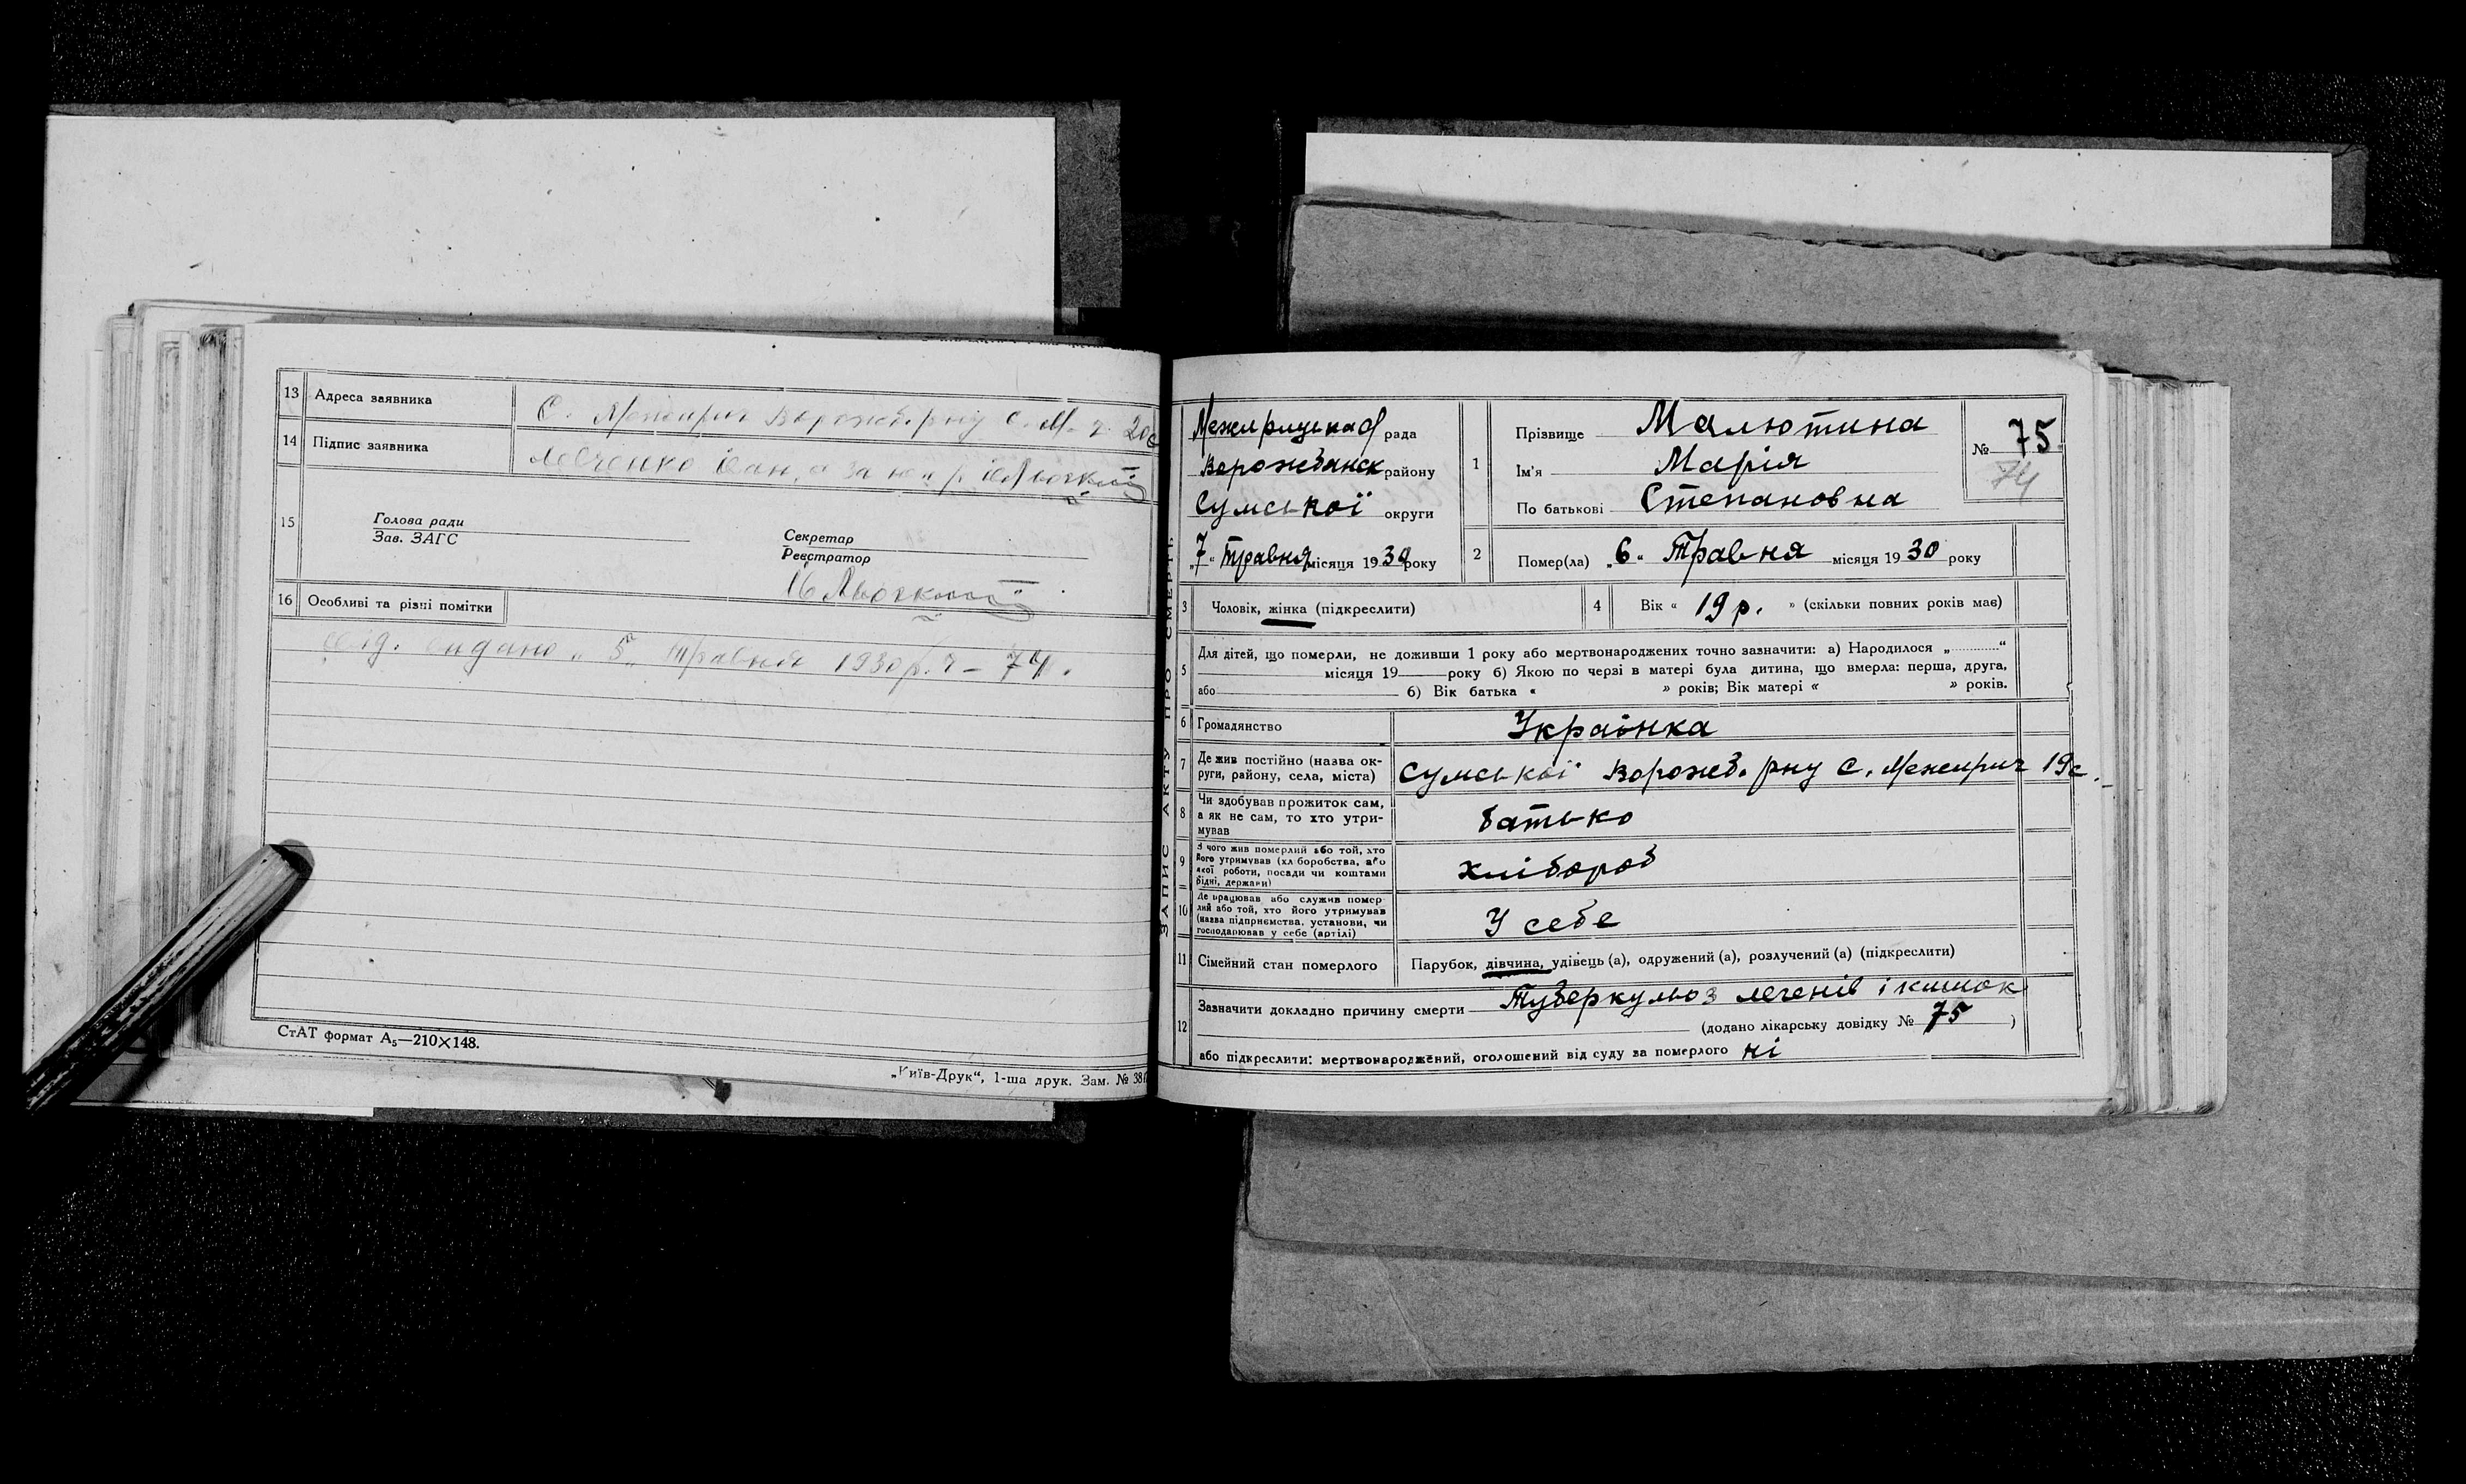 13 Адреса заявника С. Межирич Ворожб. рну С. М. 20с
14 Підпис заявника Левченко Іван, а за
15 Голова ради
Зав. ЗАГС
Секретар
Реєстратор
16 Особливі та різні помітки
видано „5„ Травня 1930р. ч – 74.
СтАТ формат А₅—210×148.
„Київ-Друк“, 1-ша друк. Зам. №
ЗАПИС АКТУ ПРО СМЕРТЬ
Межирицька рада
Ворожбянск району
Сумської округи
„7“ Травня місяця 1930 року
1 Прізвище Малютина
Ім'я Марія
По батькові Степановна
№ 75
74
2 Помер(ла) „6“ Травня місяця 1930 року
3 Чоловік, жінка (підкреслити)
4 Вік « 19 р. » (скільки повних років має)
5 Для дітей, що померли, не доживши 1 року або мертвонароджених точно зазначити: а) Народилося „ “
місяця 19 року б) Якою по черзі в матері була дитина, що вмерла: перша, друга,
або б) Вік батька « » років; Вік матері « » років.
6 Громадянство Українка
7 Де жив постійно (назва ок-
руги, району, села, міста) Сумської Ворожб. рну С. Межирич 19с.
8 Чи здобував прожиток сам,
а як не сам, то хто утри-
мував батько
9 З чого жив померлий або той, хто
його утримував (хліборобства, або
якої роботи, посади чи коштами
рідні, держави) хлібороб
10 Де працював або служив помер-
лий або той, хто його утримував
(назва підприємства, установи, чи
господарював у себе (артілі) У себе
11 Сімейний стан померлого Парубок, дівчина, удівець (а), одружений (а), розлучений (а) (підкреслити)
12 Зазначити докладно причину смерти Туберкульоз легенів і кишок
(додано лікарську довідку № 75 )
або підкреслити: мертвонароджений, оголошений від суду за померлого ні